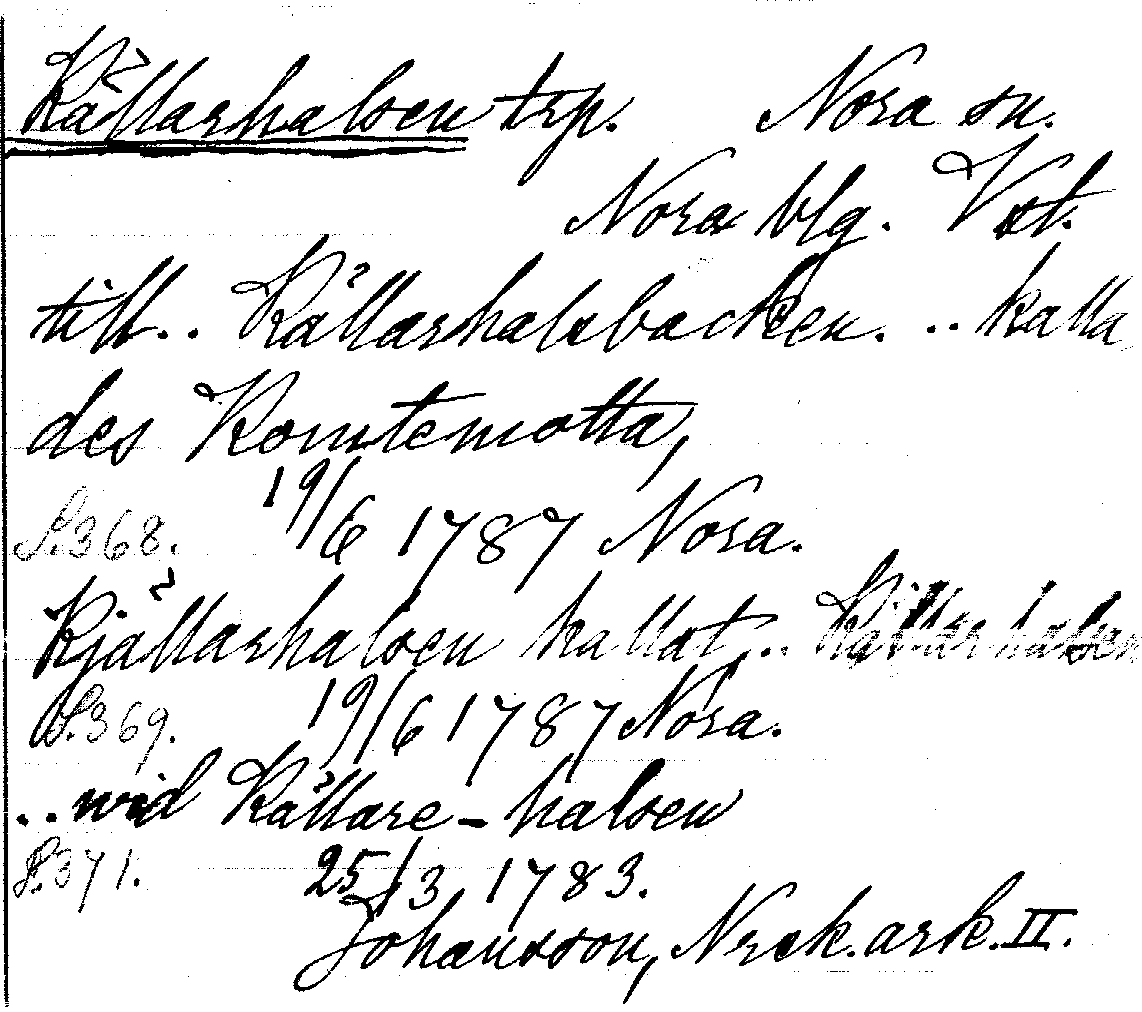 Källarhalsen trp. Nora sn.
Nora blg. Vst.
till.. Källarhalsbacken. .. kalla
des Komtemotta,
S.368. 19/6 1787 Nora.
Kjällarhalsen kallat.. Källarhalsen
S.369. 19/6 1787 Nora.
.. wid Källare-halsen
S.371. 25/3 1783.
Johansson, Nrck. ark. II.